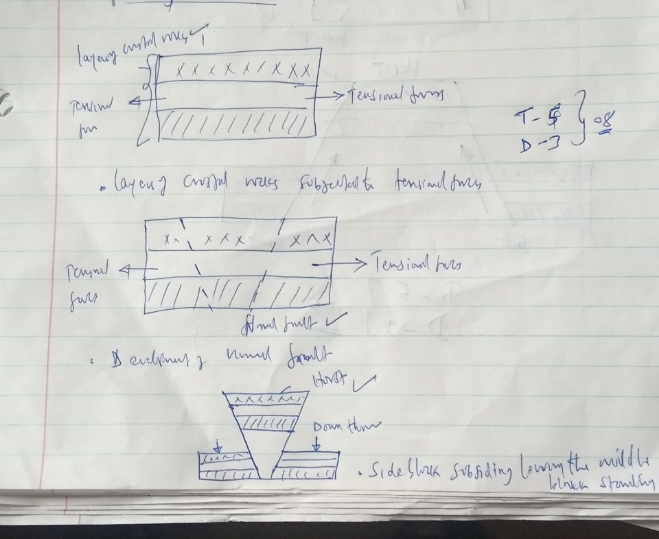 Layers of crustal rocks
Tensional forces
Tensional forces
T - 5
D - 3
08
• Layers of crustal rocks subjected to tensional forces
Tensional forces
Tensional forces
Normal fault
• Development of normal fault
Horst
Down throw
• Side blocks subsiding leaving the middle
block standing